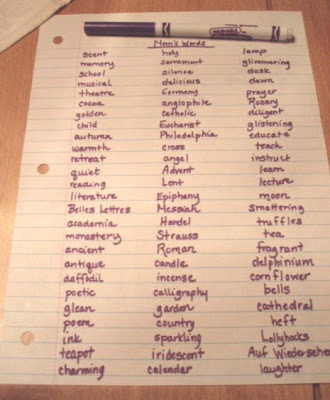 Mom's Words
scent
memory
school
musical
theatre
cocoa
golden
child
autumn
warmth
retreat
quiet
reading
literature
Belles Lettres
academia
monastery
ancient
antique
daffodil
poetic
glean
poem
ink
teapot
charming
holy
Sacrament
silence
delicious
Germany
anglophile
Catholic
Eucharist
Philadelphia
cross
angel
Advent
Lent
Epiphany
Messiah
Handel
Strauss
Roman
candle
incense
calligraphy
garden
country
sparkling
iridescent
calendar
lamp
glimmering
dusk
dawn
prayer
Rosary
diligent
glistening
educate
teach
instruct
learn
lecture
moon
smattering
truffles
tea
fragrant
delphinium
cornflower
bells
cathedral
heft
Lollyhocks
Auf Wiedersehe
laughter